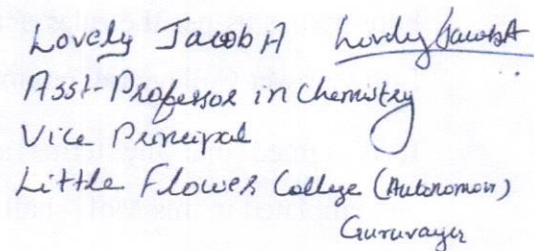 Lovely Jacob A Lovely Jacob A
Asst-Professor in Chemistry
Vice Principal
Little Flower College (Autonomous)
Guruvayur